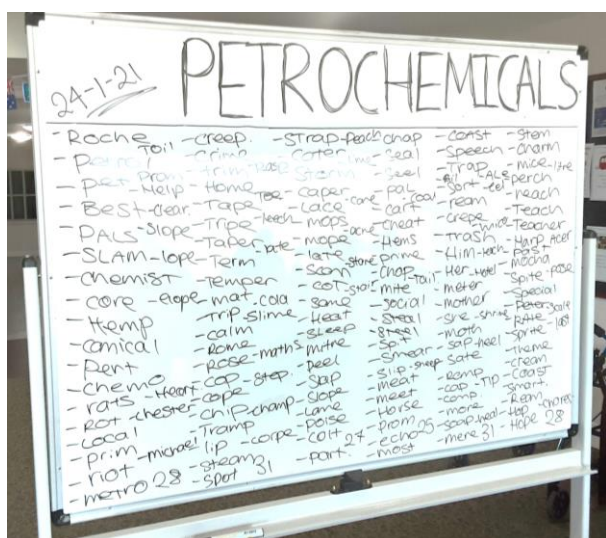 24-1-21
PETROCHEMICALS
- Roche
Toil
- Best - clear
- PALS - slope
- SLAM - lope
- chemist
- core - elope
- Hemp
- comical
- Pert
- chemo
- rats - Heart
- Rot - chester
- Local
- prim
- riot - michael
- metro 28
- creep
- crime
- trim
- Home
- Tape Toe
- Tripe - leech
- Taper
- Term
- Temper
- mat - cola
- Trip - slime
- calm
- Rome
- Rose - maths
- cop - step
- cope
- chip - champ
- Tramp
- lip - corpe
- steam
- spot 31
- STRAP - peach
- cater
- storm
- caper
- Lace - cane
- mops
- mope - acne
- late
- scam
- cot
- same
- Heat
- sleep
- mitre
- peel
- slap
- slope
- Lame
- poise
- colt
- part 27
- chap
- seal
- seel
- pal
- cart - coal
- cheat
- Hems
- prime
- chop
- mite - Tail
- social
- steal
- steel
- spit
- smear
- slip - sheep
- meat
- meet
- Horse
- prom
- echo 25
- most
- COAST
- speech
- Trap
- sort - eel
- ream
- crepe
- Trash
- Him - each
- Her - Hotel
- meter
- mother
- she - shrine
- moth
- sap - heel
- sate
- Romp
- cap - Tip
- comp
- more
- soap - heal
- mere 31
- stem
- charm
- mice - litre
- perch
- reach
- Teach
- Teacher
- Harp Acer
- post
mocha
- Spite - pose
- Special
- Peter scale
- Rate
- sprite - last
- theme
- cream
- Coast
- smart
- Ream
- Hop chores
- Hope 28